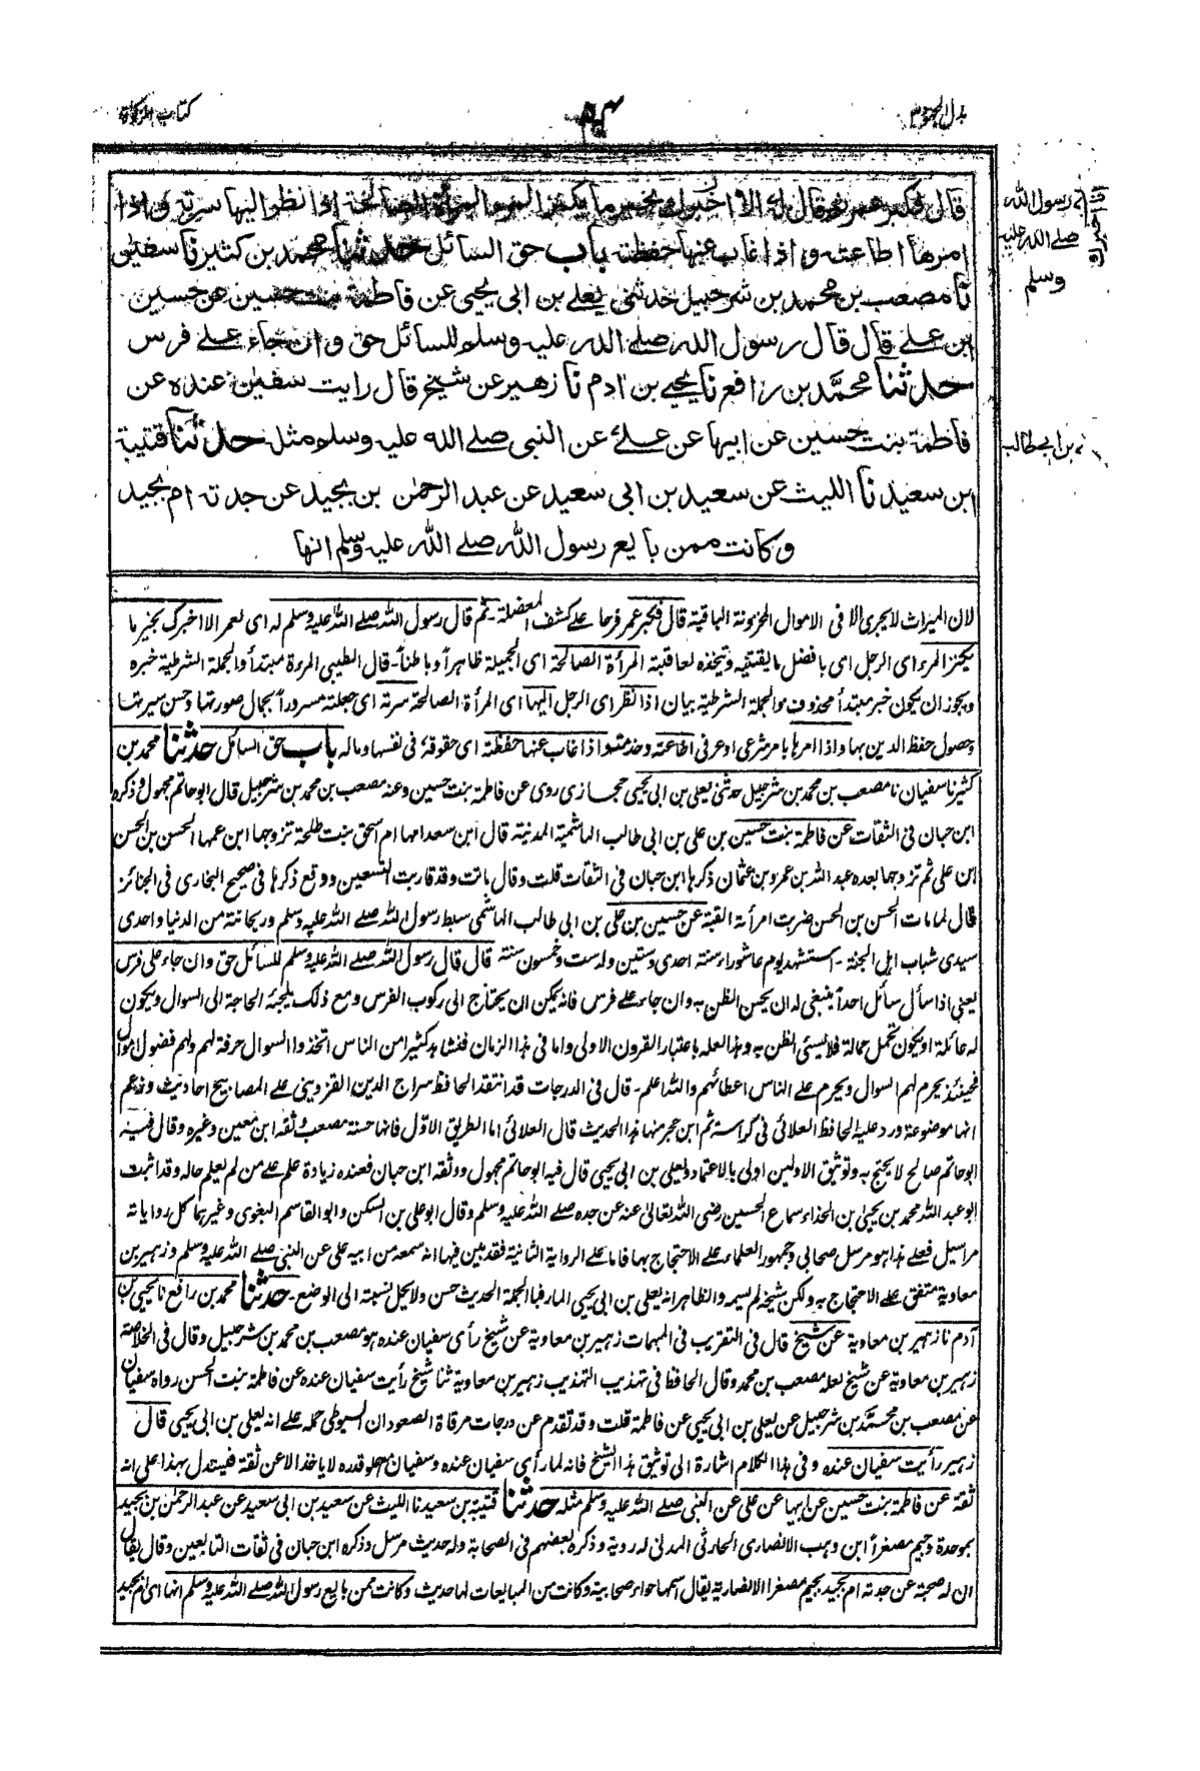 بذل المجهود
كتاب الزكاة
قال فكبر عمر ثم قال له الا اخبرك بخير ما يكنز المرء المرأة الصالحة اذا نظر اليها سرته واذا
امرها اطاعته واذا غاب عنها حفظته باب حق السائل حدثنا محمد بن كثير نا سفين
نا مصعب بن محمد بن شرحبيل حدثني يعلى بن ابى يحيى عن فاطمة بنت حسين عن حسين
بن على قال قال رسول الله صلى الله عليه وسلم للسائل حق وان جاء على فرس
حدثنا محمد بن رافع نا يحيى بن ادم نا زهير عن شيخ قال رايت سفين عنده عن
فاطمة بنت حسين عن ابيها عن على عن النبى صلى الله عليه وسلم مثله حدثنا قتيبة
ابن سعيد نا الليث عن سعيد بن ابى سعيد عن عبد الرحمن بن بجيد عن جدته ام بجيد
وكانت ممن بايع رسول الله صلى الله عليه وسلم انها
رسول الله
صلى الله عليه
وسلم
بن ابى طالب
لان الميراث لا يجرى الا فى الاموال المخزونة الباقية قال فكبر عمر فرحا على كشف المعضلة - ثم قال رسول الله صلى الله عليه وسلم له اى لعمر الا اخبرك بخير ما
يكنز المرء اى الرجل اى بافضل ما يقتنيه ويتخذه لعاقبته المرأة الصالحة اى الجميلة ظاهراً وباطناً - قال الطيبى المرءة مبتدأ والجملة الشرطية خبره
ويجوز ان يكون خبر مبتدأ محذوف والجملة الشرطية بيان اذا نظر اى الرجل اليها اى المرأة الصالحة سرته اى جعلته مسروراً بجمال صورتها وحسن سيرتها
وحصول حفظ الدين بها واذا امرها بامر شرعى او عرفى اطاعته وخدمته واذا غاب عنها حفظته اى حقوقه فى نفسها وماله باب حق السائل حدثنا محمد بن
كثير نا سفيان نا مصعب بن محمد بن شرحبيل حدثنى يعلى بن ابى يحيى حجازى روى عن فاطمة بنت حسين وعنه مصعب بن محمد بن شرحبيل قال ابوحاتم مجهول وذكره
ابن حبان فى الثقات عن فاطمة بنت حسين بن على بن ابى طالب الهاشمية المدنية قال ابن سعد امها ام اسحق بنت طلحة تزوجها ابن عمها الحسن بن الحسن
ابن على ثم تزوجها بعده عبد الله بن عمرو بن عثمان ذكرها ابن حبان فى الثقات قلت وقال ماتت وقد قاربت التسعين ووقع ذكرها فى صحيح البخارى فى الجنائز
قال لما مات الحسن بن الحسن ضربت امرأته القبة عن حسين بن على بن ابى طالب الهاشمى سبط رسول الله صلى الله عليه وسلم وريحانته من الدنيا واحدى
سيدى شباب اهل الجنة - استشهد يوم عاشوراء سنة احدى وستين وله ست وخمسون سنة قال قال رسول الله صلى الله عليه وسلم للسائل حق وان جاء على فرس
يعنى اذا سأل سائل احداً ينبغى له ان يحسن الظن به وان جاء على فرس فانه يمكن ان يحتاج الى ركوب الفرس ومع ذلك يلجئه الحاجة الى السوال ويكون
له عائلة او يكون تحمل حمالة فلا يسئ الظن به وهذا لعله باعتبار القرون الاولى واما فى هذا الزمان فنشاهد كثيرا من الناس اتخذوا السوال حرفة لهم ولهم فضول اموال
فحينئذ يحرم لهم السوال ويحرم على الناس اعطائهم والله اعلم - قال فى الدرجات قد انتقد الحافظ سراج الدين القزوينى على المصابيح احاديث وزعم
انها موضوعة ورد عليه الحافظ العلائى فى كراسة ثم ابن حجر منها هذا الحديث قال العلائى اما الطريق الاول فانها حسنة مصعب وثقه ابن معين وغيره وقال فيه
ابوحاتم صالح لا يحتج به وتوثيق الاولين اولى بالاعتماد ويعلى بن ابى يحيى قال فيه ابوحاتم مجهول ووثقه ابن حبان فعنده زيادة علم على من لم يعلم حاله وقد اثبت
ابو عبد الله محمد بن يحيى بن الحذاء سماع الحسين رضى الله تعالى عنه عن جده صلى الله عليه وسلم وقال ابو على بن السكن وابو القاسم البغوى وغيرهما كل رواياته
مراسيل فعلى هذا هو مرسل صحابى وجمهور العلماء على الاحتجاج بها فاما على الرواية الثانية فقد بين فيها انه سمعه من ابيه على عن النبى صلى الله عليه وسلم وزهير بن
معاوية متفق على الاحتجاج به ولكن شيخه لم يسمه والظاهر انه يعلى بن ابى يحيى المار فبالجملة الحديث حسن ولا يحل نسبته الى الوضع - حدثنا محمد بن رافع نا يحيى بن
آدم نا زهير بن معاوية عن شيخ قال فى التقريب فى المبهمات زهير بن معاوية عن شيخ رأى سفيان عنده هو مصعب بن محمد بن شرحبيل وقال فى الخلاصة
زهير بن معاوية عن شيخ لعله مصعب بن محمد وقال الحافظ فى تهذيب التهذيب زهير بن معاوية ثنا شيخ رأيت سفيان عنده عن فاطمة بنت الحسين رواه سفيان
عن مصعب بن محمد بن شرحبيل عن يعلى بن ابى يحيى عن فاطمة قلت وقد تقدم عن درجات مرقاة الصعود ان السيوطى حمله على انه يعلى بن ابى يحيى قال
زهير رأيت سفيان عنده وفى هذا الكلام اشارة الى توثيق هذا الشيخ فانه لما رأى سفيان عنده وسفيان مع علو قدره لا ياخذ الا عن ثقة فيستدل بهذا على انه
ثقة عن فاطمة بنت حسين عن ابيها عن على عن النبى صلى الله عليه وسلم مثله حدثنا قتيبة بن سعيد نا الليث عن سعيد بن ابى سعيد عن عبد الرحمن بن بجيد
بموحدة وجيم مصغراً ابن وهب الانصارى الحارثى المدنى له روية وذكره بعضهم فى الصحابة وله حديث مرسل وذكره ابن حبان فى ثقات التابعين وقال يقال
ان له صحبة عن جدته ام بجيد بجيم مصغرا الانصارية يقال اسمها حواء صحابية وكانت من المبايعات لها حديث وكانت ممن بايع رسول الله صلى الله عليه وسلم انها اى ام بجيد